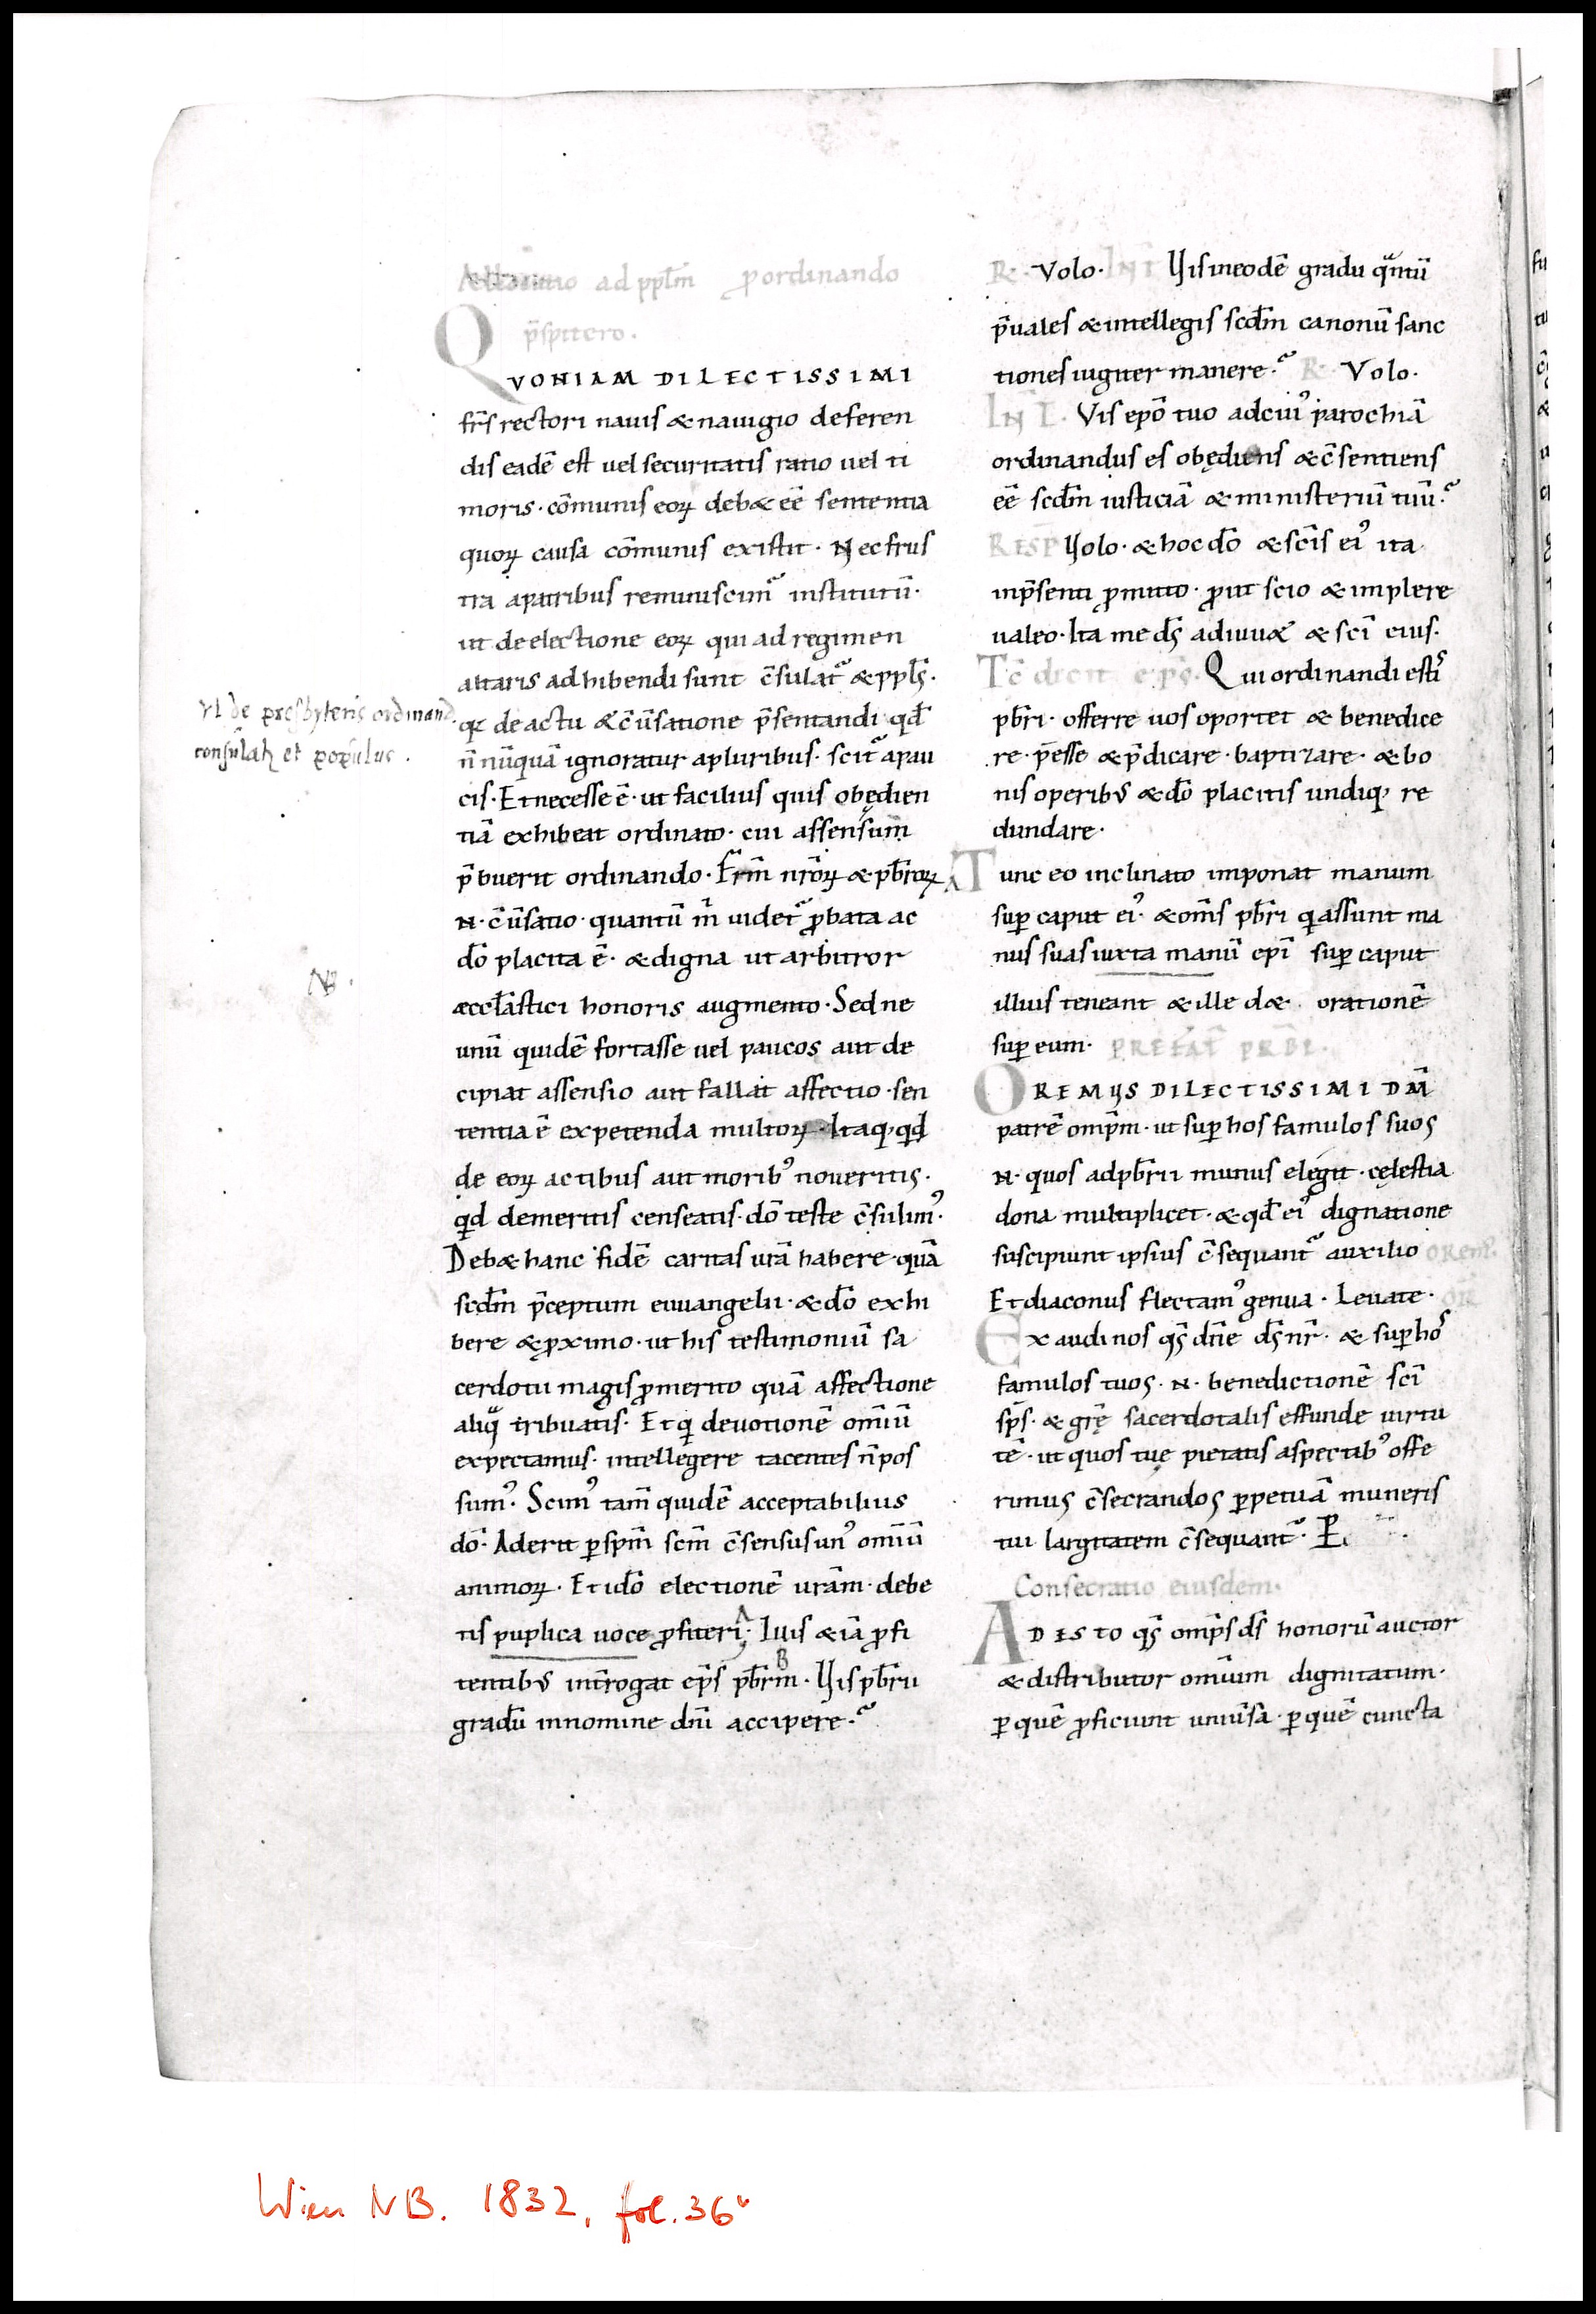 Allocutio ad pplm̄ p̄ordinando
p̄spitero.
QVONIAM DILECTISSIMI
fr̄s rectori nauis & nauigio deferen
dis eadē est uel securitatis ratio uel ti
moris· cōmunis eoꝝ deb& eē sententia
quoꝝ causa cōmunis existit· Nec frus
tra apatribus reminiscimᷣ institutū·
ut de electione eoꝝ qui ad regimen
altaris adhibendi sunt c̄sulatᷣ & ppl̄s·
qꝛ de actu & c̄ūsatione p̄sentandi qd̄
n̄ nūquā ignoratur apluribus· scitᷣ apau
cis· Et necesse ē· ut facilius quis obędien
tiā exhibeat ordinato· cui assensum
p̄buerit ordinando· Fr̄m nr̄oꝝ & pb̄roꝝ
N· c̄ūsatio· quantū m̄ uidetᷣ ꝓbata ac
dō placita ē· & digna ut arbitror
æccl̄astici honoris augmento· Sed ne
unū quidē fortasse uel paucos aut de
cipiat assensio aut fallat affectio· sen
tentia ē expetenda multoꝝ· Itaqꝫ qd̄
de eoꝝ actibus aut moribꝰ noueritis·
qid demeritis censeatis· dō teste c̄sulimꝰ·
Deb& hanc fidē caritas ur̄a habere· quā
scd̄m p̄ceptum euuangelii· & dō exhi
bere & ꝓximo· ut his testimoniū sa
cerdotii magis ꝓmerito quā affectione
aliq̄ tribuatis· Et qi deuotionē om̄iū
expectamus· intellegere tacentes n̄ pos
sumꝰ· Scimꝰ tam̄ quidē acceptabilius
dō· Aderit ꝑ sp̄m sc̄m c̄sensus unꝰ om̄iū
animoꝝ· Et idō electionē ur̄am· debe
tis puplica uoce ꝓfiteri· Iuis & iā ꝓfi
tentibꝰ int̄rogat ep̄s pb̄rm· Vis pb̄rii
gradū in nomine dn̄i accipere·
VI de presbyteris ordinand
consulatꝛ et populus.
NB.
R· Volo· INT̄ Vis in eodē gradu q̄ntū
p̄uales & intellegis scd̄m canonū sanc
tiones iugiter manere· R· Volo·
INT̄. Vis epō tuo ad cuiꝰ parochiā
ordinandus es obędiens & c̄sentiens
eē scd̄m iusticiā & ministeriū tuū·
RESP̄ Volo· & hoc dō & sc̄is eiꝰ ita
in p̄senti ꝓmitto· ꝓut scio & implere
ualeo· Ita me ds̄ adiuu& & sc̄i eius·
Tc̄ dicit ep̄s. Qui ordinandi estis
pb̄ri· offerre uos oportet & benedice
re· p̄esse & p̄dicare· baptizare· & bo
nis operibꝰ & dō placitis undiqꝫ re
dundare·
Tunc eo inclinato imponat manum
suꝑ caput eiꝰ· & om̄s pb̄ri qi assunt ma
nus suas iuxta manū epī suꝑ caput
illius teneant & ille d& orationē
suꝑ eum· PREFAT̄ PRB̄I.
OREMVS DILECTISSIMI DM̄
patrē omp̄m· ut suꝑ hos famulos suos
N· quos ad pb̄rii munus elegit· cęlestia
dona multiplicet· & qd̄ eiꝰ dignatione
suscipiunt ipsius c̄sequantᷣ auxilio OREMꝰ.
Et diaconus flectamꝰ genua· Leuate· OR̄
Exaudi nos qs̄ dn̄e ds̄ nr̄· & suꝑ hos
famulos tuos· N· benedictionē sc̄i
sp̄s· & gr̄ę sacerdotalis effunde uirtu
tē· ut quos tuę pietatis aspectibꝰ offe
rimus c̄secrandos ꝑpetuā muneris
tui largitatem c̄sequantᷣ· P̱
Consecratio eiusdem·
ADESTO qs̄ omp̄s ds̄ honorū auctor
& distributor omnium dignitatum·
ꝑ quē ꝓficiunt uniūsa· ꝑ quē cuncta
Wien NB. 1832, fol. 36ᵛ